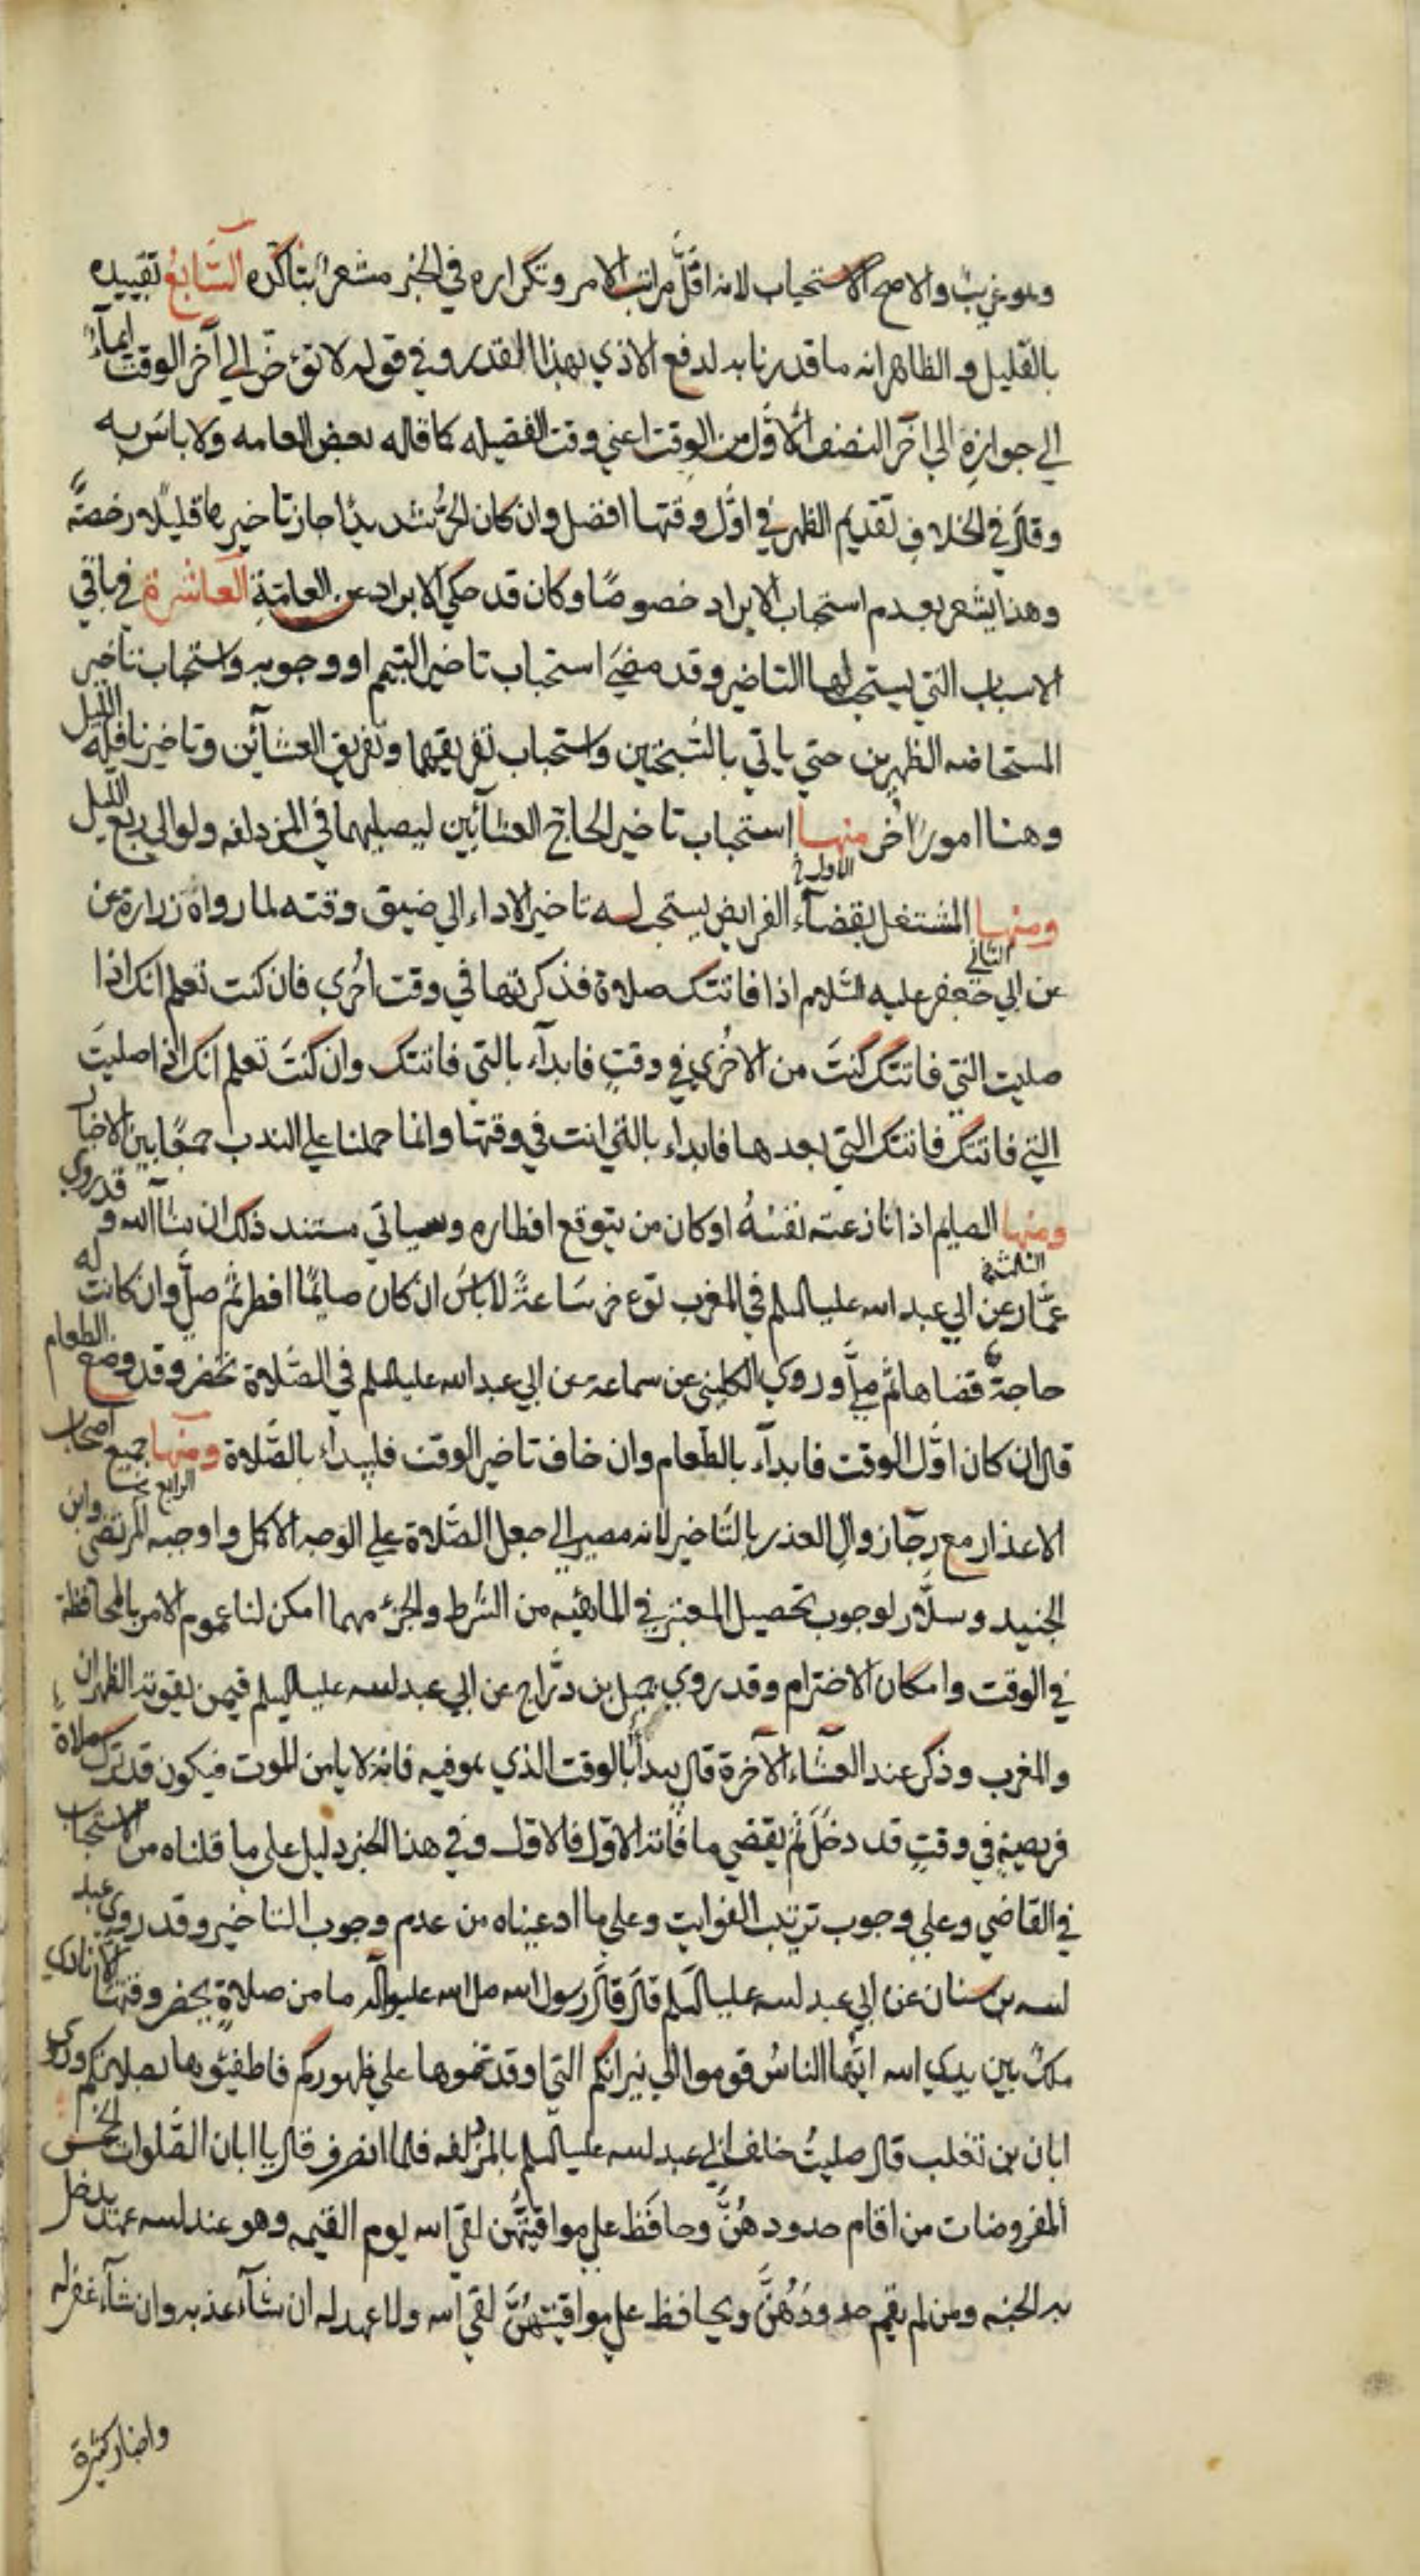 وهو غريب والاصح الاستحباب لانه اقل مراتب الامر وتكراره في الخبر مشعر بتاكده السابع تقييده
بالقليل والظاهر انه ما قدرنا به لدفع الاذي بهذا القدر وفي قوله لا تؤخر الي آخر الوقت ايماء
الي جوازه الي آخر النصف الاول من الوقت اعني وقت الفضيله كما قاله بعض العامه ولا باس به
وقال في الخلاف تقديم الظهر في اول وقتها افضل وان كان الحر شديدا جاز تاخيرها قليلا رخصة
وهذا يشعر بعدم استحباب الابراد خصوصا وكان قد حكي الابراد عن العامة العاشرة في باقي
الاسباب التي يستحب لها التاخير وقد مضي استحباب تاخير التيمم او وجوبه واستحباب تاخير
المستحاضه الظهرين حتي ياتي بالتبختين واستحباب تفريقهما وتفريق العشائين وتاخير نافلة الليل
وهنا امور اخر منها استحباب تاخير الحاج العشائين ليصليهما في المزدلفه ولو الي ربع الليل
الاول
ومنها المشتغل بقضآء الفرايض يستحب له تاخير الاداء الي ضيق وقته لما رواه زرارة عن
الثاني
عن ابي جعفر عليه السلام اذا فاتتك صلاة فذكرتها في وقت اخري فان كنت تعلم انك اذا
صليت التي فاتتك كنت من الاخري في وقت فابدآء بالتي فاتتك وان كنت تعلم انك اذا صليت
التي فاتتك فاتتك التي بعدها فابداء بالتي انت في وقتها وانما حملنا علي الندب جمعا بين الاخبار
ومنها الصايم اذا نازعته نفسه او كان من يتوقع افطاره وسياتي مستند ذلك ان شاآالله وقد روي
الثالث
عمار عن ابي عبد الله عليه السلم في المغرب تؤخر ساعة لا باس ان كان صائما افطر ثم صل وان كانت له
حاجة قضاها ثم صل وروي الكليني عن سماعة عن ابي عبد الله عليه السلم في الصلاة تحضر وقد وضع الطعام
قال ان كان اول الوقت فابدآء بالطعام وان خاف تاخير الوقت فليبداء بالصلاة ومنها جميع اصحاب
الرابع
الاعذار مع رجآ زوال العذر بالتاخير لانه مصير الي جعل الصلاة علي الوجه الاكمل واوجبه المرتضي وابن
الجنيد وسلار لوجوب تحصيل المعتبر في الماهيه من الشرط والجزء مهما امكن لنا عموم الامر بالمحافظة
في الوقت وامكان الاخترام وقد روي جميل بن دراج عن ابي عبد الله عليه السلم فيمن يفوته الظهران
والمغرب وذكر عند العشآء الآخرة قال يبدأ بالوقت الذي هو فيه فانه لا يامن الموت فيكون قد ترك صلاة
فريضة في وقت قد دخل ثم يقضي ما فاته الاول فالاول وفي هذا الخبر دليل علي ما قلناه من الاستحباب
في القاضي وعلي وجوب ترتيب الفوايت وعلي ما ادعيناه من عدم وجوب التاخير وقد روي عبد
الله بن سنان عن ابي عبد الله عليه السلم قال قال رسول الله صل الله عليه وآله ما من صلاة يحضر وقتها الا نادي
ملك بين يدي الله ايها الناس قوموا الي نيرانكم التي اوقدتموها علي ظهوركم فاطفئوها بصلاتكم وروي
ابان بن تغلب قال صليت خلف ابي عبد الله عليه السلم بالمزدلفه فلما انصرف قال يا ابان الصلوات الخمس
المفروضات من اقام حدودهن وحافظ علي مواقيتهن لقي الله يوم القيمه وهو عند الله عهد يدخل
به الجنه ومن لم يقم حدودهن ويحافظ علي مواقيتهن لقي الله ولا عهد له ان شآء عذبه وان شآء غفر له
واخبار كثيرة